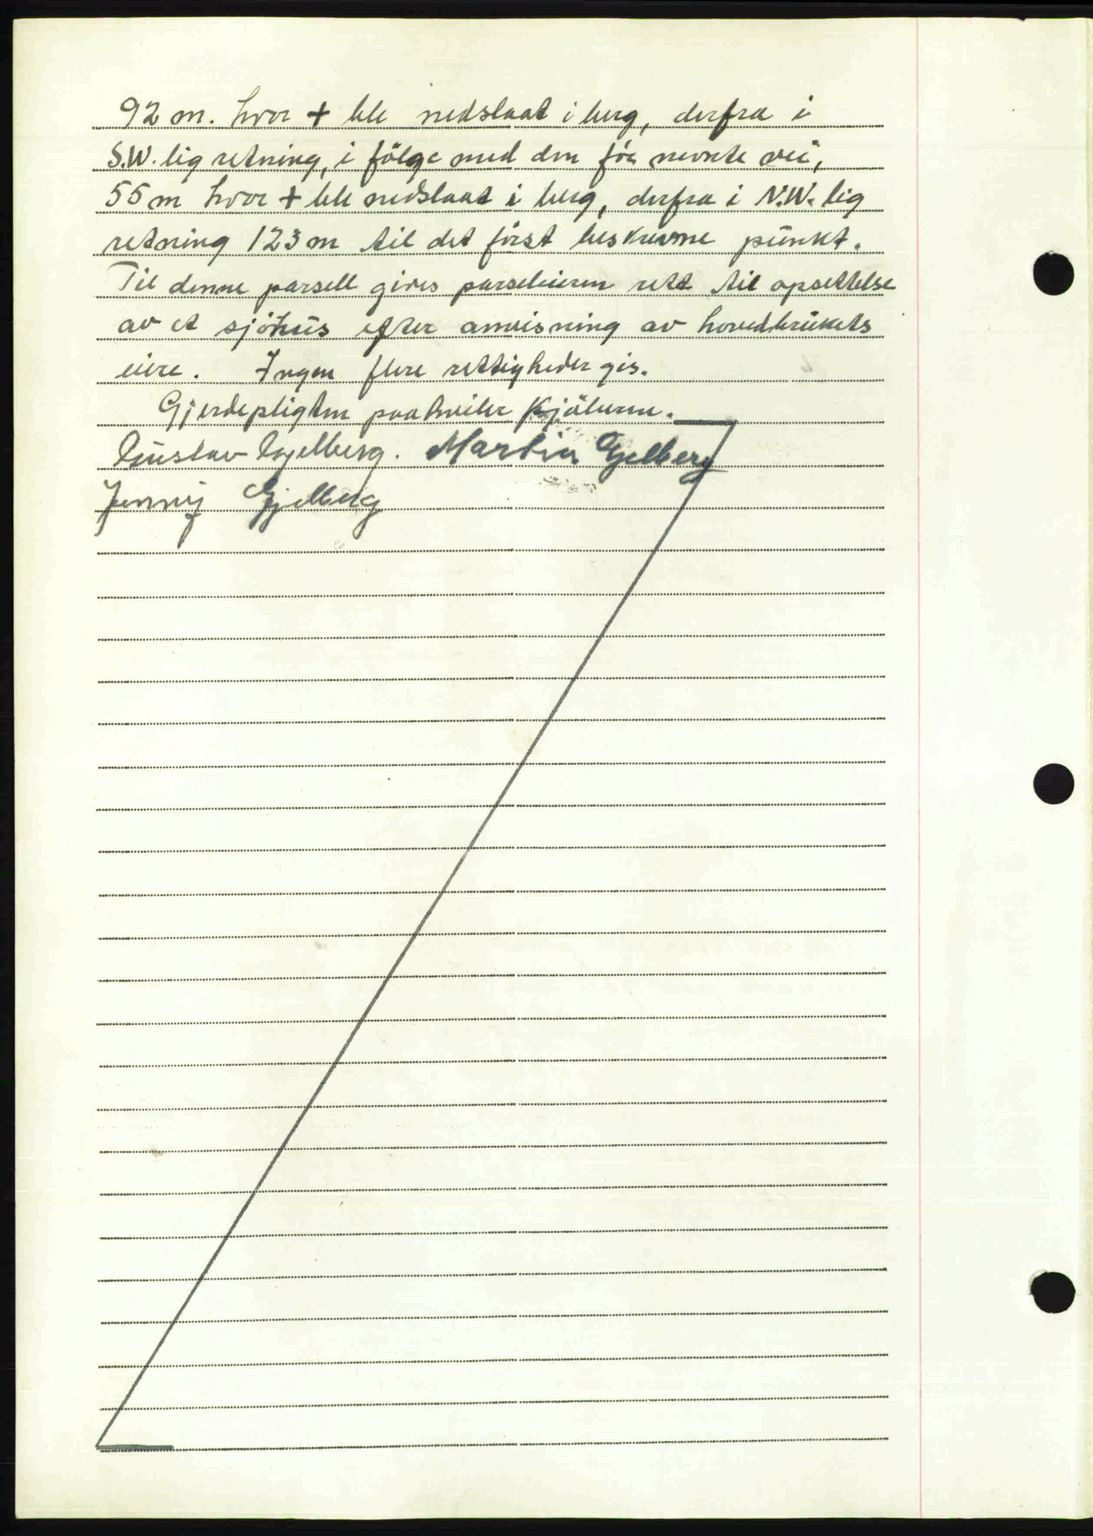 92 m. hvor + ble nedslaat i berg, derfra i
S.W. lig retning, i følge med den før nevnte vei,
55 m hvor + ble nedslaat i berg, derfra i N.W. lig
retning 123 m til det først beskrevne punkt.
Til denne parsell gives parseleieren rett til opsettelse
av et sjøhus efter anvisning av hovedbrukets
eiere. Ingen flere rettigheder gis.
Gjerdepligten paahviler kjøberen.
Gustav Gjelberg. Martin Gjelberg
Jenny Gjelberg